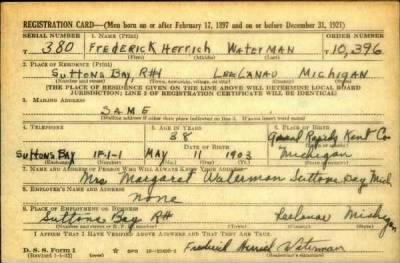 REGISTRATION CARD—(Men born on or after February 17, 1897 and on or before December 31, 1921)
SERIAL NUMBER 1. NAME (Print) ORDER NUMBER
T 380 FREDERICK Herrich WATERMAN T10,396
(First) (Middle) (Last)
2. PLACE OF RESIDENCE (Print)
SUTTONS BAY, R#1 LEELANAU MICHIGAN
(Number and street) (Town, township, village, or city) (County) (State)
[THE PLACE OF RESIDENCE GIVEN ON THE LINE ABOVE WILL DETERMINE LOCAL BOARD
JURISDICTION; LINE 2 OF REGISTRATION CERTIFICATE WILL BE IDENTICAL]
3. MAILING ADDRESS
SAME
(Mailing address if other than place indicated on line 2. If same insert word same)
4. TELEPHONE 5. AGE IN YEARS 6. PLACE OF BIRTH
38 Grand Rapids Kent Co
DATE OF BIRTH
SUTTONS BAY 1F-1-1 MAY 11 1903 Michigan
(Exchange) (Number) (Mo.) (Day) (Yr.) (State or country)
7. NAME AND ADDRESS OF PERSON WHO WILL ALWAYS KNOW YOUR ADDRESS
Mrs Margaret Waterman Suttons Bay Mich
8. EMPLOYER'S NAME AND ADDRESS
None
9. PLACE OF EMPLOYMENT OR BUSINESS
Suttons Bay R# Leelanau Michigan
(Number and street or R. F. D. number) (Town) (County) (State)
I AFFIRM THAT I HAVE VERIFIED ABOVE ANSWERS AND THAT THEY ARE TRUE.
D. S. S. Form 1
Frederick Waterman